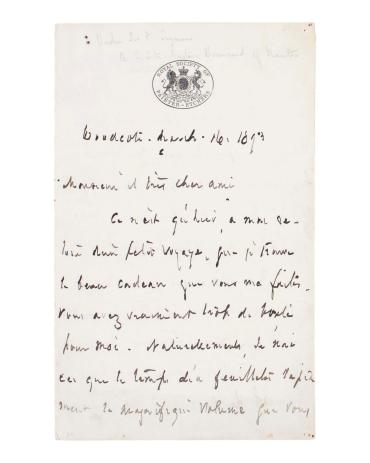 ROYAL SOCIETY OF
PAINTER-ETCHERS
Woodcote. March. 16. 1893
Monsieur et très cher ami
Ce n'est qu'hier, à mon re-
tour d'un petit voyage, que je trouve
le beau cadeau que vous me faites.
Vous avez vraiment trop de bonté
pour moi. Naturellement, je n'ai
eu que le temps de feuilleter rapide
ment le magnifique volume que vous